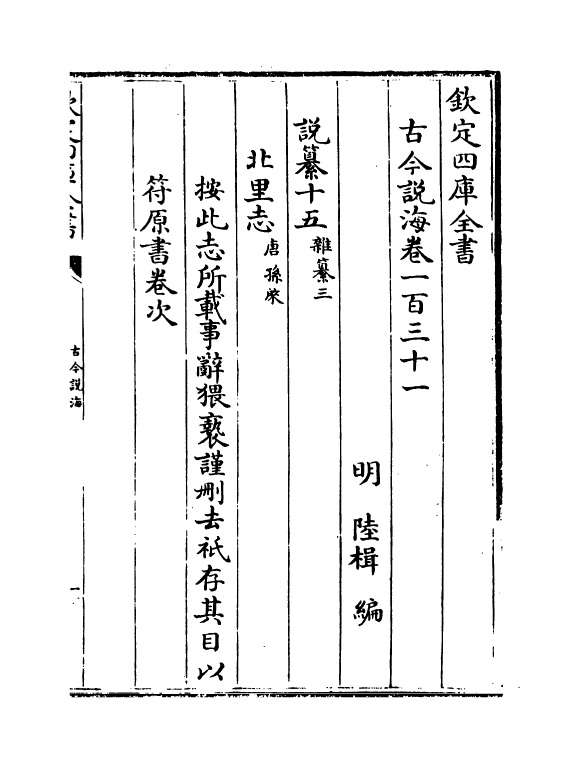 欽定四庫全書
古今說海卷一百三十一
明 陸楫 編
說纂十五 雜纂三
北里志 唐 孫棨
按此志所載事辭猥褻謹刪去祇存其目以
符原書卷次
欽定四庫全書
古今說海
一